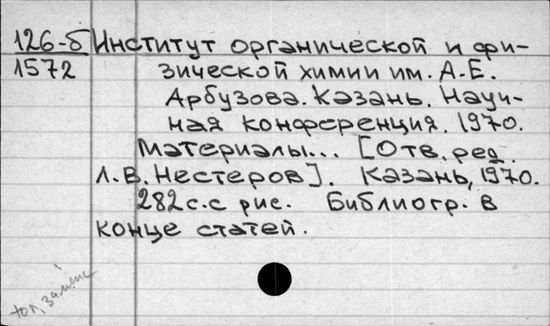 126-б Институт органической и фи-
1572 зической химии им. А.Е.
Арбузова. Казань. Науч-
ная конференция. 1970.
Материалы... [Отв. ред.
Л.В. Нестеров]. Казань, 1970.
282 с. с рис. Библиогр. в
конце статей.